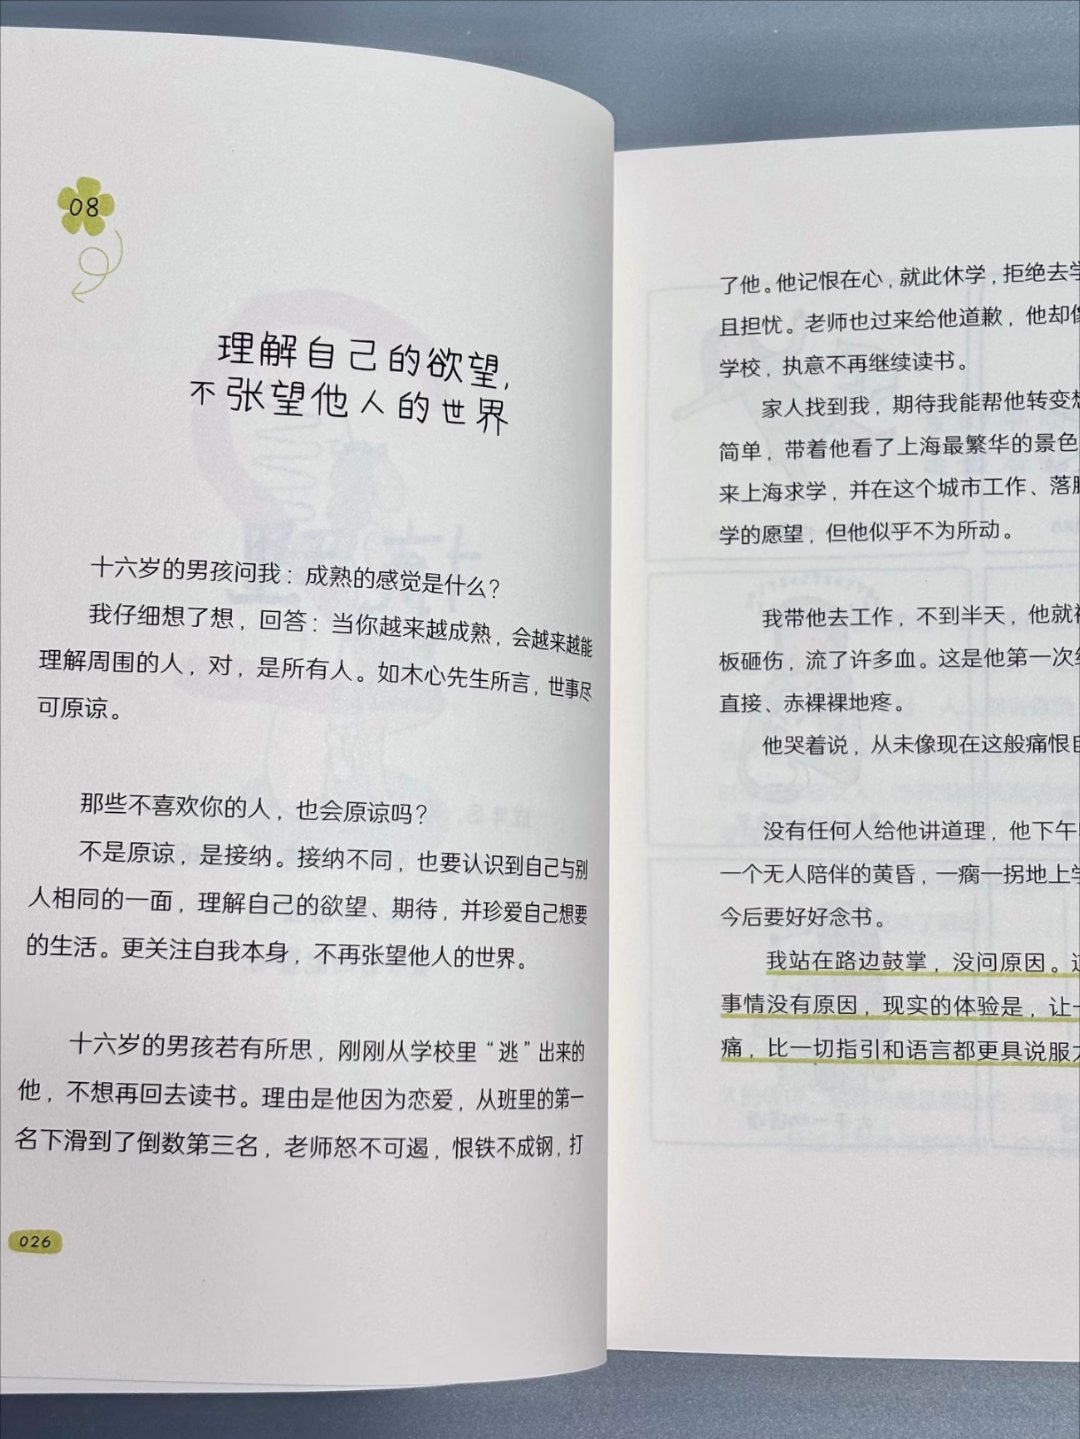 08
理解自己的欲望,
不张望他人的世界
十六岁的男孩问我：成熟的感觉是什么？
我仔细想了想，回答：当你越来越成熟，会越来越能
理解周围的人，对，是所有人。如木心先生所言，世事尽
可原谅。
那些不喜欢你的人，也会原谅吗？
不是原谅，是接纳。接纳不同，也要认识到自己与别
人相同的一面，理解自己的欲望、期待，并珍爱自己想要
的生活。更关注自我本身，不再张望他人的世界。
十六岁的男孩若有所思，刚刚从学校里“逃”出来的
他，不想再回去读书。理由是他因为恋爱，从班里的第一
名下滑到了倒数第三名，老师怒不可遏，恨铁不成钢，打
026
了他。他记恨在心，就此休学，拒绝去学
且担忧。老师也过来给他道歉，他却像
学校，执意不再继续读书。
家人找到我，期待我能帮他转变想
简单，带着他看了上海最繁华的景色
来上海求学，并在这个城市工作、落脚
学的愿望，但他似乎不为所动。
我带他去工作，不到半天，他就被
板砸伤，流了许多血。这是他第一次
直接、赤裸裸地疼。
他哭着说，从未像现在这般痛恨自
没有任何人给他讲道理，他下午
一个无人陪伴的黄昏，一瘸一拐地上学
今后要好好念书。
我站在路边鼓掌，没问原因。这
事情没有原因，现实的体验是，让一
痛，比一切指引和语言都更具说服力